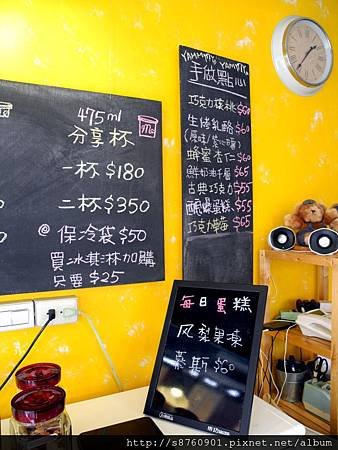 475ml
分享杯
一杯 $180
二杯 $350
@ 保冷袋 $50
買冰淇淋加購
只要 $25
YAMMY YAMMY
手做點心
巧克力核桃 $60
生烤乳酪 $60
蜂蜜杏仁 $60
鮮奶油千層 $65
古典巧克力 $55
蛋糕 $55
巧克力華莓 $65
每日蛋糕
风梨果凍
慕斯 $60
http://s8760901.pixnet.net/album